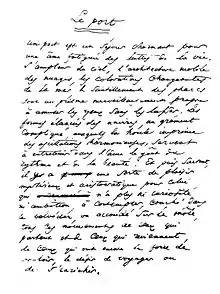 Le port
Un port est un séjour charmant pour
une âme fatiguée des luttes de la vie.
L'ampleur du ciel, l'architecture mobile
des nuages, les colorations changeantes
de la mer, le scintillement des phares
sont un prisme merveilleusement propre
à amuser les yeux sans les lasser. Les
formes élancées des navires, au gréement
compliqué, auxquels la houle imprime
des oscillations harmonieuses, servent
à entretenir dans l'âme le goût du
rythme et de la beauté. Et puis, surtout,
il y a une sorte de plaisir
mystérieux et aristocratique pour celui
qui n'a plus ni curiosité
ni ambition à contempler, couché dans
le belvédère, ou accoudé sur le môle
tous les mouvements de ceux qui
partent et de ceux qui reviennent
de ceux qui ont encore la force de
vouloir, le désir de voyager ou
de s'enrichir.